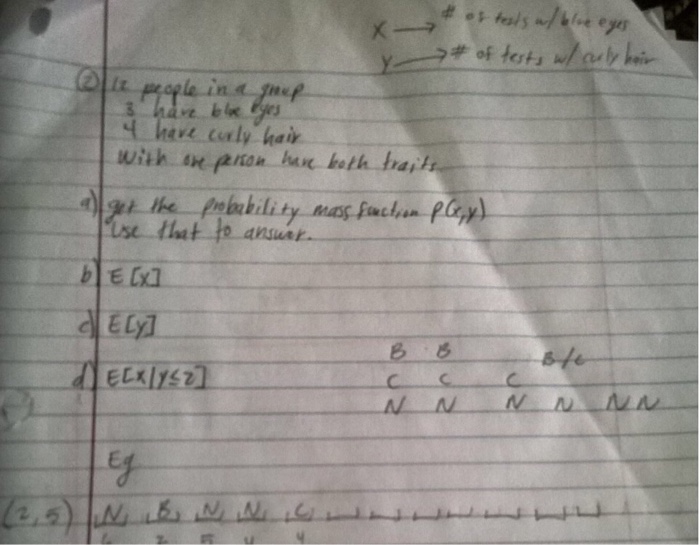 X → # of tests w/ blue eyes
Y → # of tests w/ curly hair
② 12 people in a group
3 have blue eyes
4 have curly hair
With one person have both traits
a) get the probability mass function P(x,y)
Use that to answer.
b) E[X]
c) E[Y]
d) E[X|Y≤2]
B B B/C
C C C
N N N N N N
Eg
(2,5) N B N N C
6 2 5 4 4